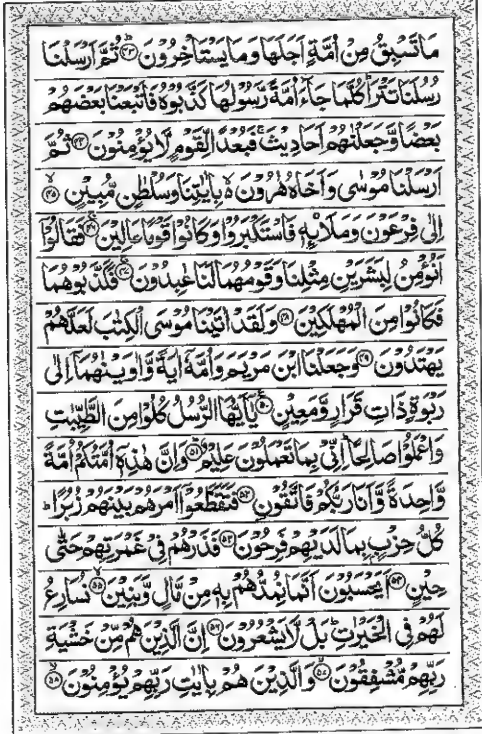 مَا تَسْبِقُ مِنْ اُمَّةٍ اَجَلَهَا وَمَا يَسْتَاْخِرُوْنَ ﴿۴۳﴾ ثُمَّ اَرْسَلْنَا
رُسُلَنَا تَتْرَا ؕ كُلَّمَا جَآءَ اُمَّةً رَّسُوْلُهَا كَذَّبُوْهُ فَاَتْبَعْنَا بَعْضَهُمْ
بَعْضًا وَّجَعَلْنٰهُمْ اَحَادِيْثَ ۚ فَبُعْدًا لِّقَوْمٍ لَّا يُؤْمِنُوْنَ ﴿۴۴﴾ ثُمَّ
اَرْسَلْنَا مُوْسٰى وَاَخَاهُ هٰرُوْنَ ۙ بِاٰيٰتِنَا وَسُلْطٰنٍ مُّبِيْنٍ ﴿۴۵﴾
اِلٰى فِرْعَوْنَ وَمَلَا۟ئِهٖ فَاسْتَكْبَرُوْا وَكَانُوْا قَوْمًا عَالِيْنَ ﴿۴۶﴾ فَقَالُوْٓا
اَنُؤْمِنُ لِبَشَرَيْنِ مِثْلِنَا وَقَوْمُهُمَا لَنَا عٰبِدُوْنَ ﴿۴۷﴾ فَكَذَّبُوْهُمَا
فَكَانُوْا مِنَ الْمُهْلَكِيْنَ ﴿۴۸﴾ وَلَقَدْ اٰتَيْنَا مُوْسَى الْكِتٰبَ لَعَلَّهُمْ
يَهْتَدُوْنَ ﴿۴۹﴾ وَجَعَلْنَا ابْنَ مَرْيَمَ وَاُمَّهٗٓ اٰيَةً وَّاٰوَيْنٰهُمَآ اِلٰى
رَبْوَةٍ ذَاتِ قَرَارٍ وَّمَعِيْنٍ ﴿۵۰﴾ يٰٓاَيُّهَا الرُّسُلُ كُلُوْا مِنَ الطَّيِّبٰتِ
وَاعْمَلُوْا صَالِحًا ؕ اِنِّىْ بِمَا تَعْمَلُوْنَ عَلِيْمٌ ﴿۵۱﴾ وَاِنَّ هٰذِهٖٓ اُمَّتُكُمْ اُمَّةً
وَّاحِدَةً وَّاَنَا رَبُّكُمْ فَاتَّقُوْنِ ﴿۵۲﴾ فَتَقَطَّعُوْٓا اَمْرَهُمْ بَيْنَهُمْ زُبُرًا ؕ
كُلُّ حِزْبٍۭ بِمَا لَدَيْهِمْ فَرِحُوْنَ ﴿۵۳﴾ فَذَرْهُمْ فِىْ غَمْرَتِهِمْ حَتّٰى
حِيْنٍ ﴿۵۴﴾ اَيَحْسَبُوْنَ اَنَّمَا نُمِدُّهُمْ بِهٖ مِنْ مَّالٍ وَّبَنِيْنَ ﴿۵۵﴾ نُسَارِعُ
لَهُمْ فِى الْخَيْرٰتِ ؕ بَلْ لَّا يَشْعُرُوْنَ ﴿۵۶﴾ اِنَّ الَّذِيْنَ هُمْ مِّنْ خَشْيَةِ
رَبِّهِمْ مُّشْفِقُوْنَ ﴿۵۷﴾ وَالَّذِيْنَ هُمْ بِاٰيٰتِ رَبِّهِمْ يُؤْمِنُوْنَ ﴿۵۸﴾